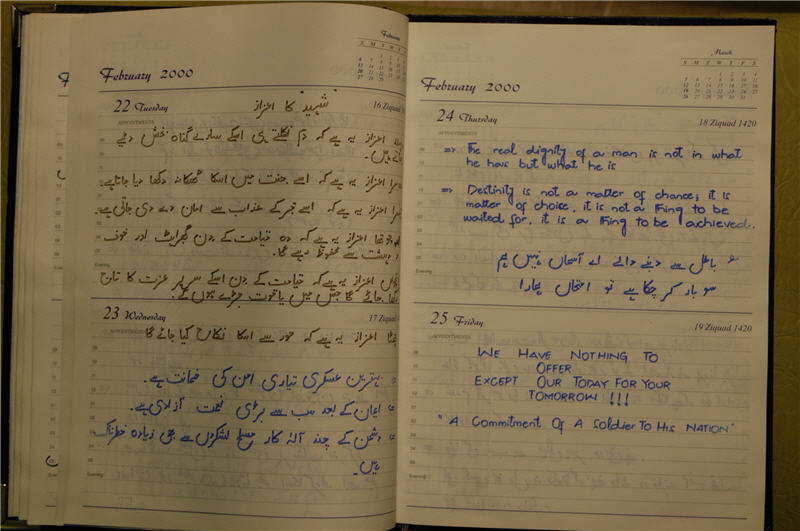 February
S M T W T F S
February 2000
22 Tuesday
16 Ziquad
"شہید" کا اعزاز
APPOINTMENTS
اعزاز یہ ہے کہ دم نکلتے ہی اسکے سارے گناہ بخش دیئے
جاتے ہیں۔
اعزاز یہ ہے کہ اسے جنت میں اسکا ٹھکانہ دکھا دیا جاتا ہے۔
اعزاز یہ ہے کہ اسے قبر کے عذاب سے امان دے دی جاتی ہے۔
چوتھا اعزاز یہ ہے کہ وہ قیامت کے دن گھبراہٹ اور خوف
و دہشت سے محفوظ رہے گا۔
Evening
اعزاز یہ ہے کہ قیامت کے دن اسکے سر پر عزت کا تاج
رکھا جائے گا جس میں یاقوت جڑے ہوں گے۔
23 Wednesday
17 Ziquad
APPOINTMENTS
چھٹا اعزاز یہ ہے کہ حور سے اسکا نکاح کیا جائے گا
بہترین عسکری تیاری امن کی ضمانت ہے۔
ایمان کے بعد سب سے بڑی نعمت آزادی ہے۔
دشمن کے چند آلہ کار مسلح لشکروں سے بھی زیادہ خطرناک
ہیں۔
Evening
March
S M T W T F S
1 2 3 4
5 6 7 8 9 10 11
12 13 14 15 16 17 18
19 20 21 22 23 24 25
26 27 28 29 30 31
February 2000
24 Thursday
18 Ziquad 1420
APPOINTMENTS
=> The real dignity of a man is not in what
he has but what he is
=> Destinity is not a matter of chance; it is
matter of choice. it is not a thing to be
waited for. it is a thing to be achieved.
باطل سے دبنے والے اے آسماں نہیں ہم
سو بار کر چکا ہے تو امتحاں ہمارا
Evening
25 Friday
19 Ziquad 1420
APPOINTMENTS
WE HAVE NOTHING TO
OFFER
EXCEPT OUR TODAY FOR YOUR
TOMORROW !!!
"A Commitment Of A Soldier To His NATION"
Evening